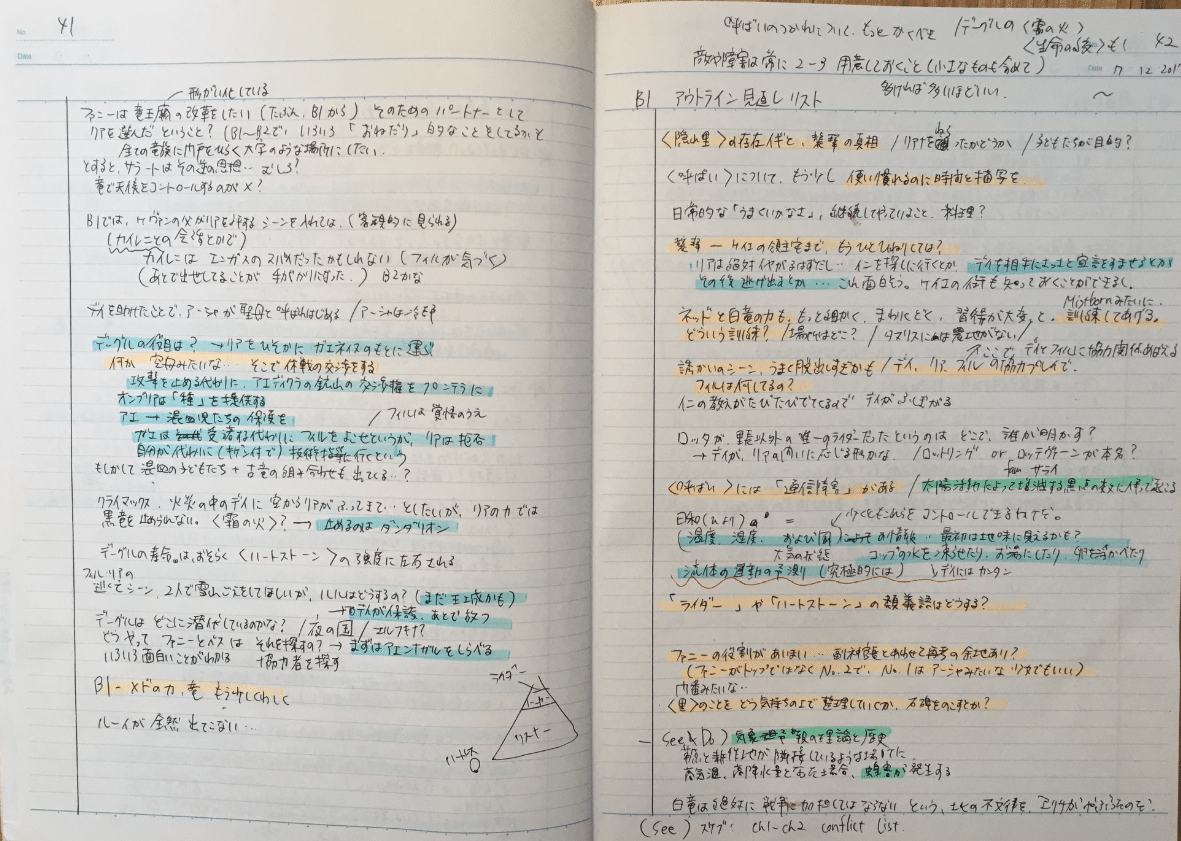 41
形がい化している
ファニーは竜王廟の改革をしたい（たぶん、B1から） そのためのパートナーとして
リアを選んだということ？（B1〜B2で いろいろ「おねだり」的なことをしてるかも
全ての竜族に門戸をひらく大学のような場所にしたい
とすると、サラートはその逆の思想… むしろ？
竜で天候をコントロールするのが×？
B1では、ケヴァンの父がリアを評するシーンを入れては、（客観的に見られる）
（カイレとの会話とかで）
カイレは エンガスのスパイだったかもしれない（フィルが気づく）
（あとで出せしてることが 手がかりになった） B2かな
デイを助けたことで、アーシャが聖母と呼ばれはじめる ／アーシャは
デーグルの役目は？ → リアをひそかに ガエネイスのもとに運ぶ
何か 空母みたいな… そこで休戦の交渉をする
攻撃を止める代わりに、アエディクラの鉱山の交渉権を フロンテラに
オンブリアは「種」を提供する
アエ → 混血児たちの保護を
／フィルは覚悟のうえ
ガエは 受諾する代わりに フィルをよこせというが、リアは拒否
自分が代わりに（ 付で）技術指導に行くという
もしかして 混血の子どもたち＋古竜の組み合わせも出てくる…？
クライマックス、火災の中のデイに 空からリアがふってきて… としたいが、リアの力では
黒竜を止められない。〈霜の火〉？ → 止めるのは ダンダリオン
デーグルの寿命は、おそらく〈ハートストーン〉の強度に左右される
フィル・リアの
逃亡シーン、2人で雪山ごえをしてほしいが、ルルはどうする？（まだ王城かも）
→ デイが保護、あとで放つ
デーグルは どこに潜伏しているのかな？ ／夜の国／エルフキナ？
どうやって ファニーとパスは それを探すの？ → まずはアエンナガルをしらべる
いろいろ面白いことがわかる 協力者を探す
B1 - メドの力、竜 もう少しくわしく
ルーイが 全然 出てこない…
ライダー
コーラー
リスナー
ハートレス
呼ばいのつかれについて、もっとかくべき ／デーグルの〈霜の火〉
〈生命の〉も！
42
敵や障害は常に 2－3 用意しておくこと（小さなものも含めて）
Date 17 12 2017
多ければ多いほどいい
B1 アウトライン見直しリスト
〈隠れ里〉の存在 と、襲撃の真相 ／リアナを狙ったかどうか ／子どもたちが目的？
〈呼ばい〉について、もう少し 使い慣れるのに時間と描写を
日常的な「うまくいかなさ」、継続してやっていること、料理？
襲撃 ― ケイエの領主宅まで、もうひとひねりしては？
リアは絶対イヤがるはずだし… イニを探しに行くとか、デイを相手にと宣言をすませるとか
その後 逃げ出すとか… これ面白そう。ケイエの街も知っておくことができるし
Mistbornみたいに、
ネッドと白竜の力も、もっと細かく、まわりにとと、習得が大変、と。訓練してあげる。
どういう訓練？ ／場所はどこ？ ／タマリスには農地がない
ここで デイとフィルに協力関係おぼえる
誘かいのシーン、うまく脱出しすぎかも ／デイ、リア、フィルの協力プレイで、
フィルは何してるの？
イニの教えがたびたびでてくるので デイがふしぎがる
ロッタが、里長以外の唯一のライダーだったというのは どこで、誰が明かす？
→ デイが、リアの問いに応じる形かな、 ／ロットリンゲ or ロッテヴァーンが本名？
fam サライ
〈呼ばい〉には「通信障害」がある ／太陽活動によって増減する黒点の数に伴って起こる
少くともこれらを コントロールできるわけだ。
（温度、湿度、および風）よっての情報… 最初は地味に見えるかも？
大気の状態 コップの水を凍らせたり、お湯にしたり、卵を浮かべたり
流体の運動の予測（究極的には） ↓デイにはカンタン
「ライダー」や「ハートストーン」の類義語はどうする？
ファニーの役割があいまい… 副神官長とあわせて再考の余地あり？
（ファニーがトップではなく No.2で、No.1はアーシャみたいな少女でもいい）
門番みたいな…
〈里〉のことを どう気持ちの上で 整理していくか、石碑をのこすとか？
See & Do） 気象予報の理論と歴史
と耕作地が隣接しているような場所に
高気温、高降水量となった場合、蝗害が発生する
白竜は絶対に 戦争に加担してはならない という、土地の不文律を、エリサがやぶったので。
（See）スケブ： ch1-ch2 conflict list.